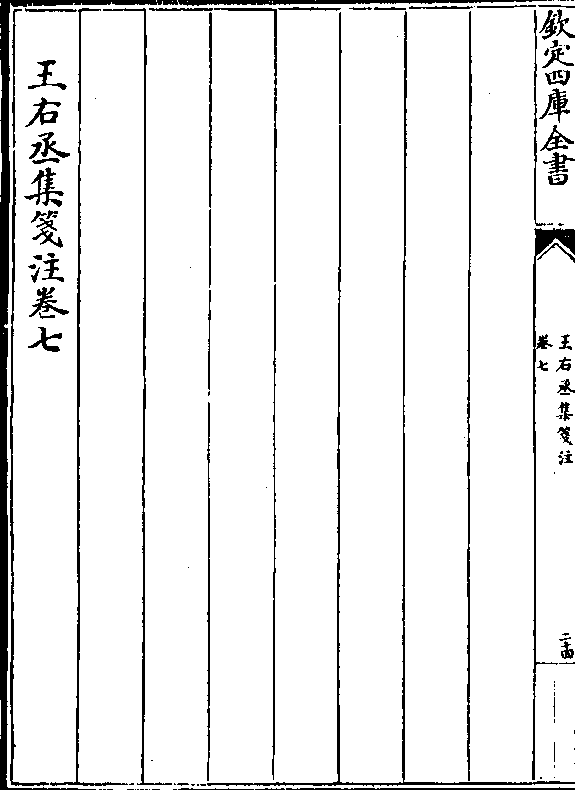 欽定四庫全書
王右丞集箋注
卷七
二十四
王右丞集箋注卷七